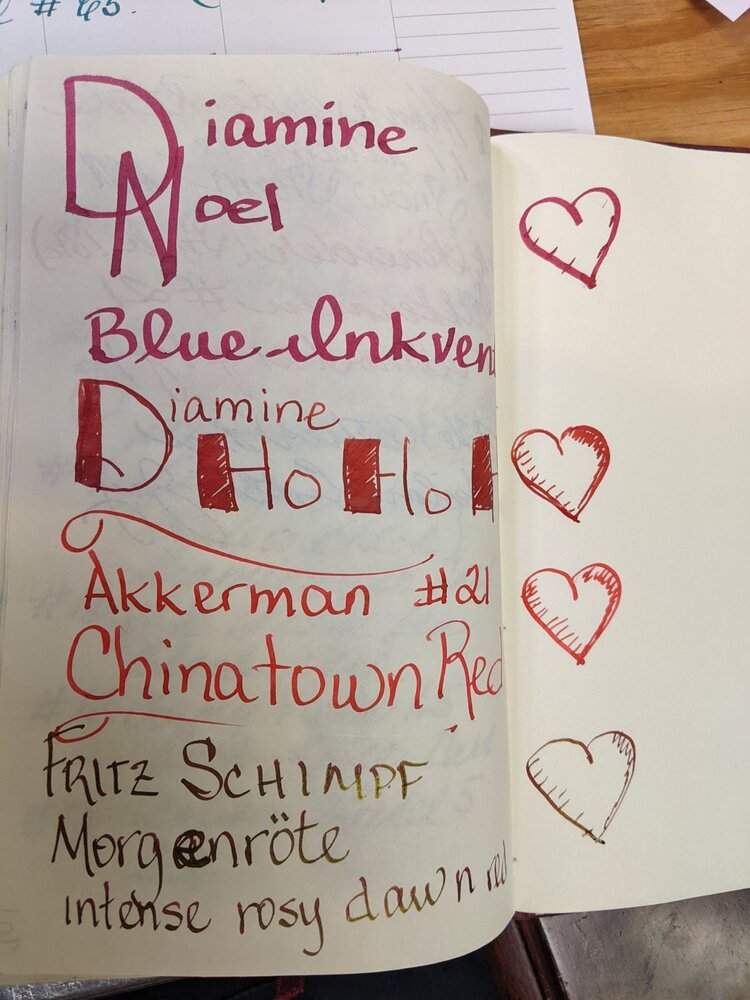 # 65.
Diamine
Noel
Blue Inkven
Diamine
Ho Ho H
Akkerman #21
Chinatown Red
FRITZ SCHIMPF
Morgenröte
intense rosy dawn red